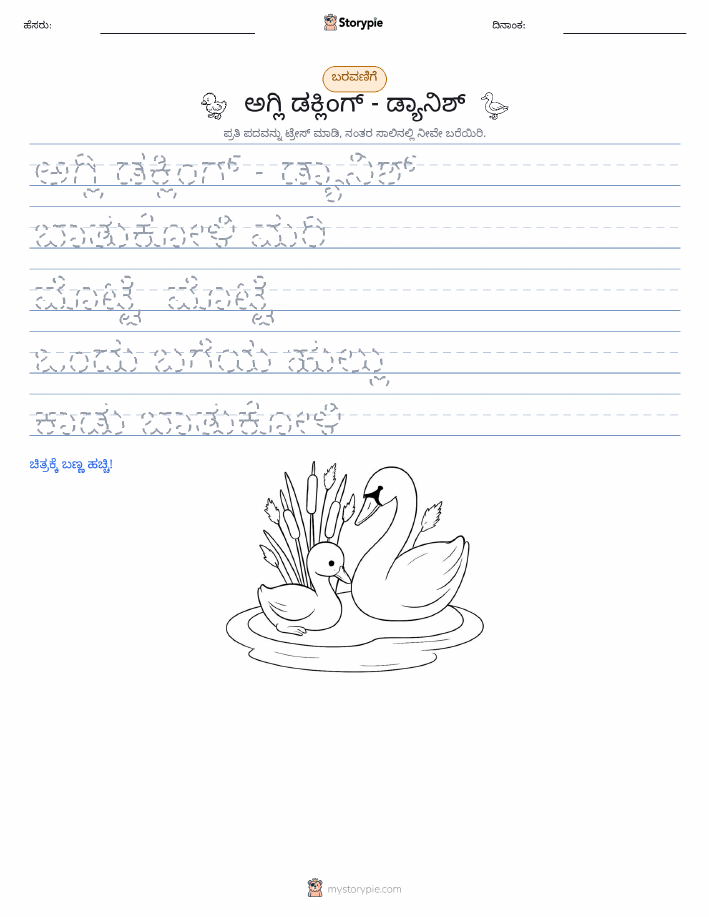 ಹೆಸರು:
Storypie
ದಿನಾಂಕ:
ಬರವಣಿಗೆ
ಅಗ್ಲಿ ಡಕ್ಲಿಂಗ್ - ಡ್ಯಾನಿಶ್
ಪ್ರತಿ ಪದವನ್ನು ಟ್ರೇಸ್ ಮಾಡಿ, ನಂತರ ಸಾಲಿನಲ್ಲಿ ನೀವೇ ಬರೆಯಿರಿ.
ಅಗ್ಲಿ ಡಕ್ಲಿಂಗ್ - ಡ್ಯಾನಿಶ್
ಬಾತುಕೋಳಿ ಮರಿ
ಮೊಟ್ಟೆ ಮೊಟ್ಟೆ
ಒಂದು ಬಗೆಯ ಹುಲ್ಲು
ಕಾಡು ಬಾತುಕೋಳಿ
ಚಿತ್ರಕ್ಕೆ ಬಣ್ಣ ಹಚ್ಚಿ!
mystorypie.com